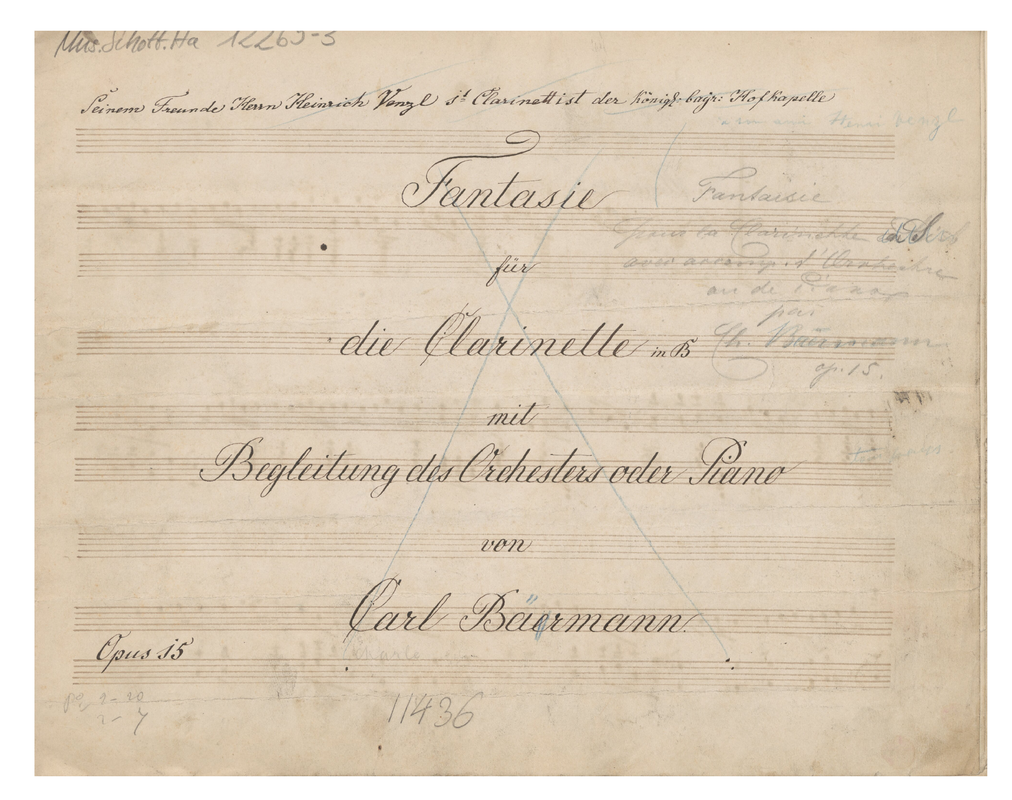 Mus.Schott.Ha 12263-3
Seinem Freunde Herrn Heinrich Venzl 1t Clarinettist der königl: bayr: Hofkapelle
Henri Venzl
Fantasie
Fantaisie
pour la Clarinette
für
avec accomp. d'Orchestre
ou de Piano
par
die Clarinette in B
Ch. Bärmann
op. 15.
mit
Begleitung des Orchesters oder Piano
von
Carl Bäermann.
Opus 15
11436